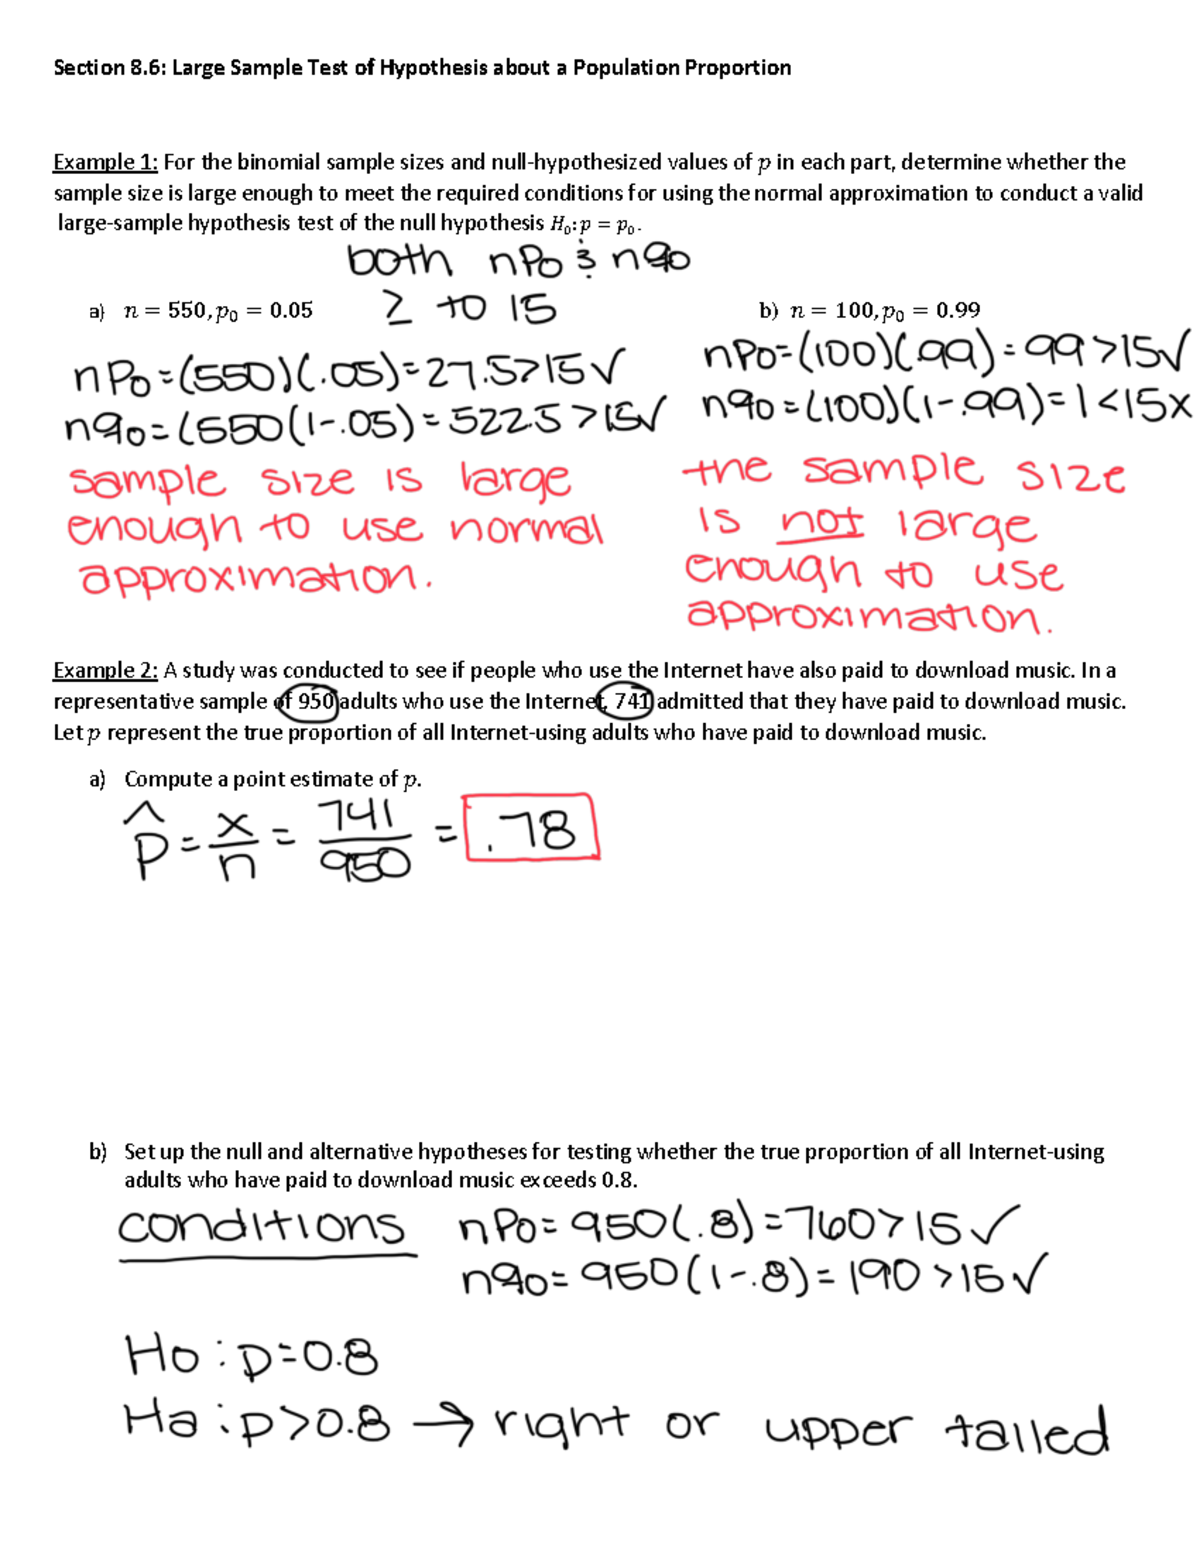 Section 8.6: Large Sample Test of Hypothesis about a Population Proportion
Example 1: For the binomial sample sizes and null-hypothesized values of p in each part, determine whether the
sample size is large enough to meet the required conditions for using the normal approximation to conduct a valid
large-sample hypothesis test of the null hypothesis H₀: p = p₀.
both np₀ & nq₀
≥ to 15
a) n = 550, p₀ = 0.05
np₀=(550)(.05)=27.5>15✓
nq₀=(550(1-.05)=522.5>15✓
sample size is large
enough to use normal
approximation.
b) n = 100, p₀ = 0.99
np₀=(100)(.99)=99>15✓
nq₀=(100)(1-.99)=1<15x
the sample size
is not large
enough to use
approximation.
Example 2: A study was conducted to see if people who use the Internet have also paid to download music. In a
representative sample of 950 adults who use the Internet, 741 admitted that they have paid to download music.
Let p represent the true proportion of all Internet-using adults who have paid to download music.
a) Compute a point estimate of p.
p̂ = x/n = 741/950 = .78
b) Set up the null and alternative hypotheses for testing whether the true proportion of all Internet-using
adults who have paid to download music exceeds 0.8.
conditions np₀=950(.8)=760>15✓
nq₀=950(1-.8)=190>15✓
Ho: p=0.8
Ha: p>0.8 → right or upper tailed